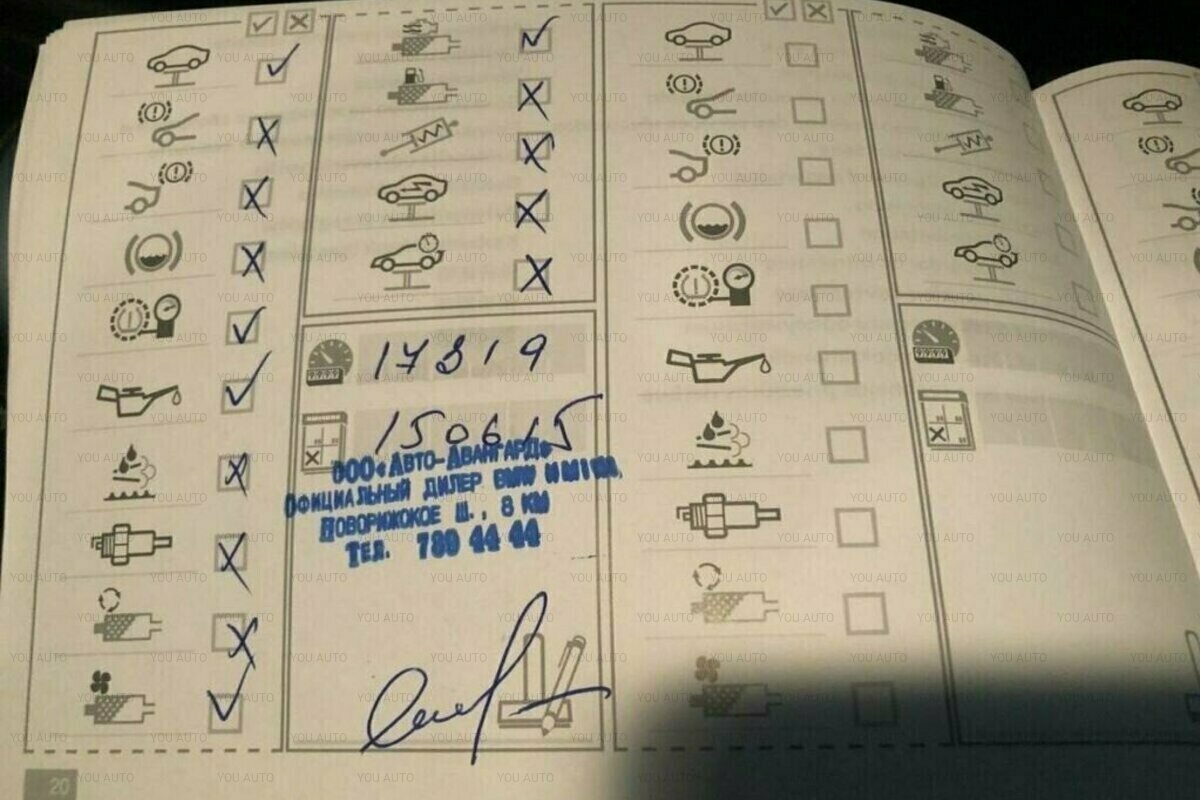 17319
150615
ООО «АВТО-АВАНГАРД»
ОФИЦИАЛЬНЫЙ ДИЛЕР BMW И MINI,
НОВОРИЖСКОЕ Ш., 8 КМ
ТЕЛ. 730 44 44
20
YOU AUTO